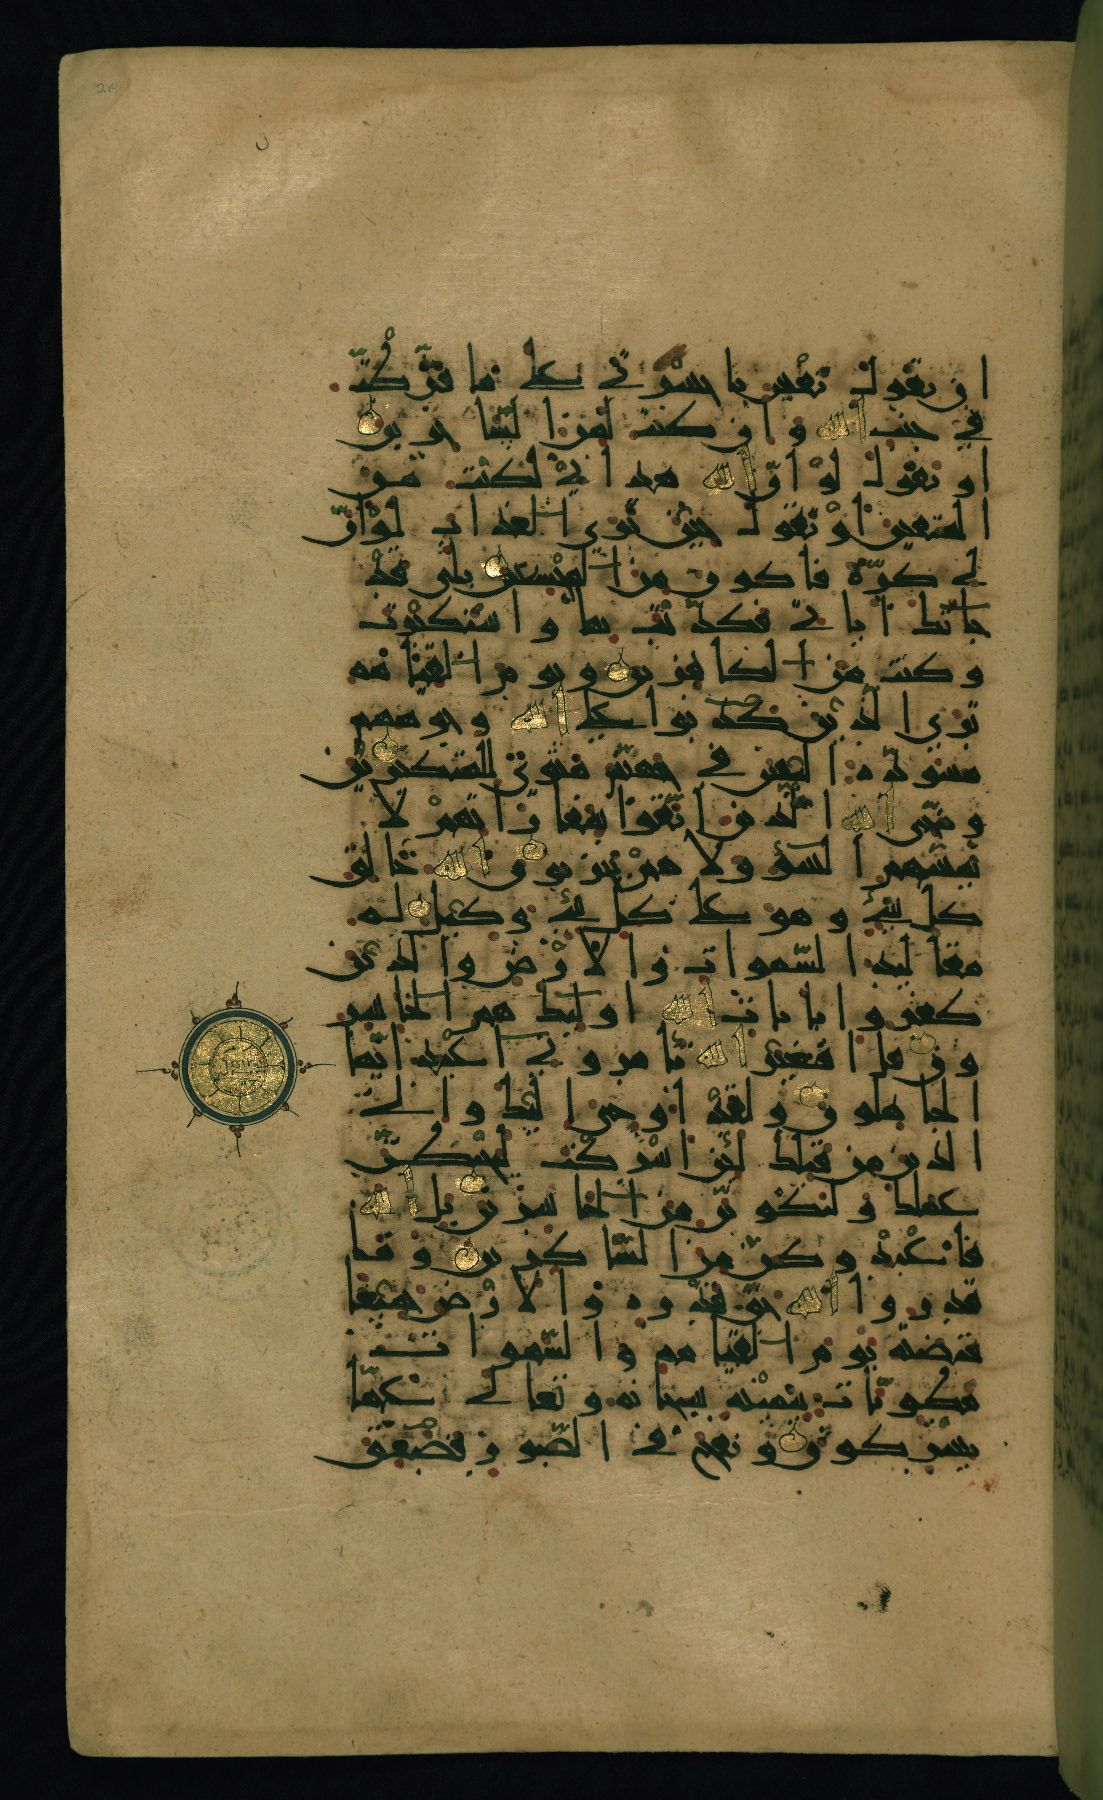 ان تقول نفس يا حسرتى على ما فرطت
في جنب الله وان كنت لمن الساخرين
او تقول لو ان الله هداني لكنت من
المتقين او تقول حين ترى العذاب لو ان
لي كرة فاكون من المحسنين بلى قد
جاتك اياتي فكذبت بها واستكبرت
وكنت من الكافرين ويوم القيامه
ترى الذين كذبوا على الله وجوههم
مسودة اليس في جهنم مثوى للمتكبرين
وينجى الله الذين اتقوا بمفازاتهم لا
يمسهم السوء ولا هم يحزنون الله خالق
كل شئ وهو على كل شئ وكيل له
مقاليد السموات والارض والذين
كفروا بايات الله اوليك هم الخاسرو
ون قل افغير الله تامروني اعبد ايها
الجاهلون ولقد اوحى اليك والى
الذين من قبلك لئن اشركت ليحبطن
عملك ولتكونن من الخاسرين بل الله
فاعبد وكن من الشاكرين وما
قدروا الله حق قدره والارض جميعا
قبضته يوم القيامه والسموات
مطويات بيمينه سبحانه وتعالى عما
يشركون ونفخ في الصور فصعق